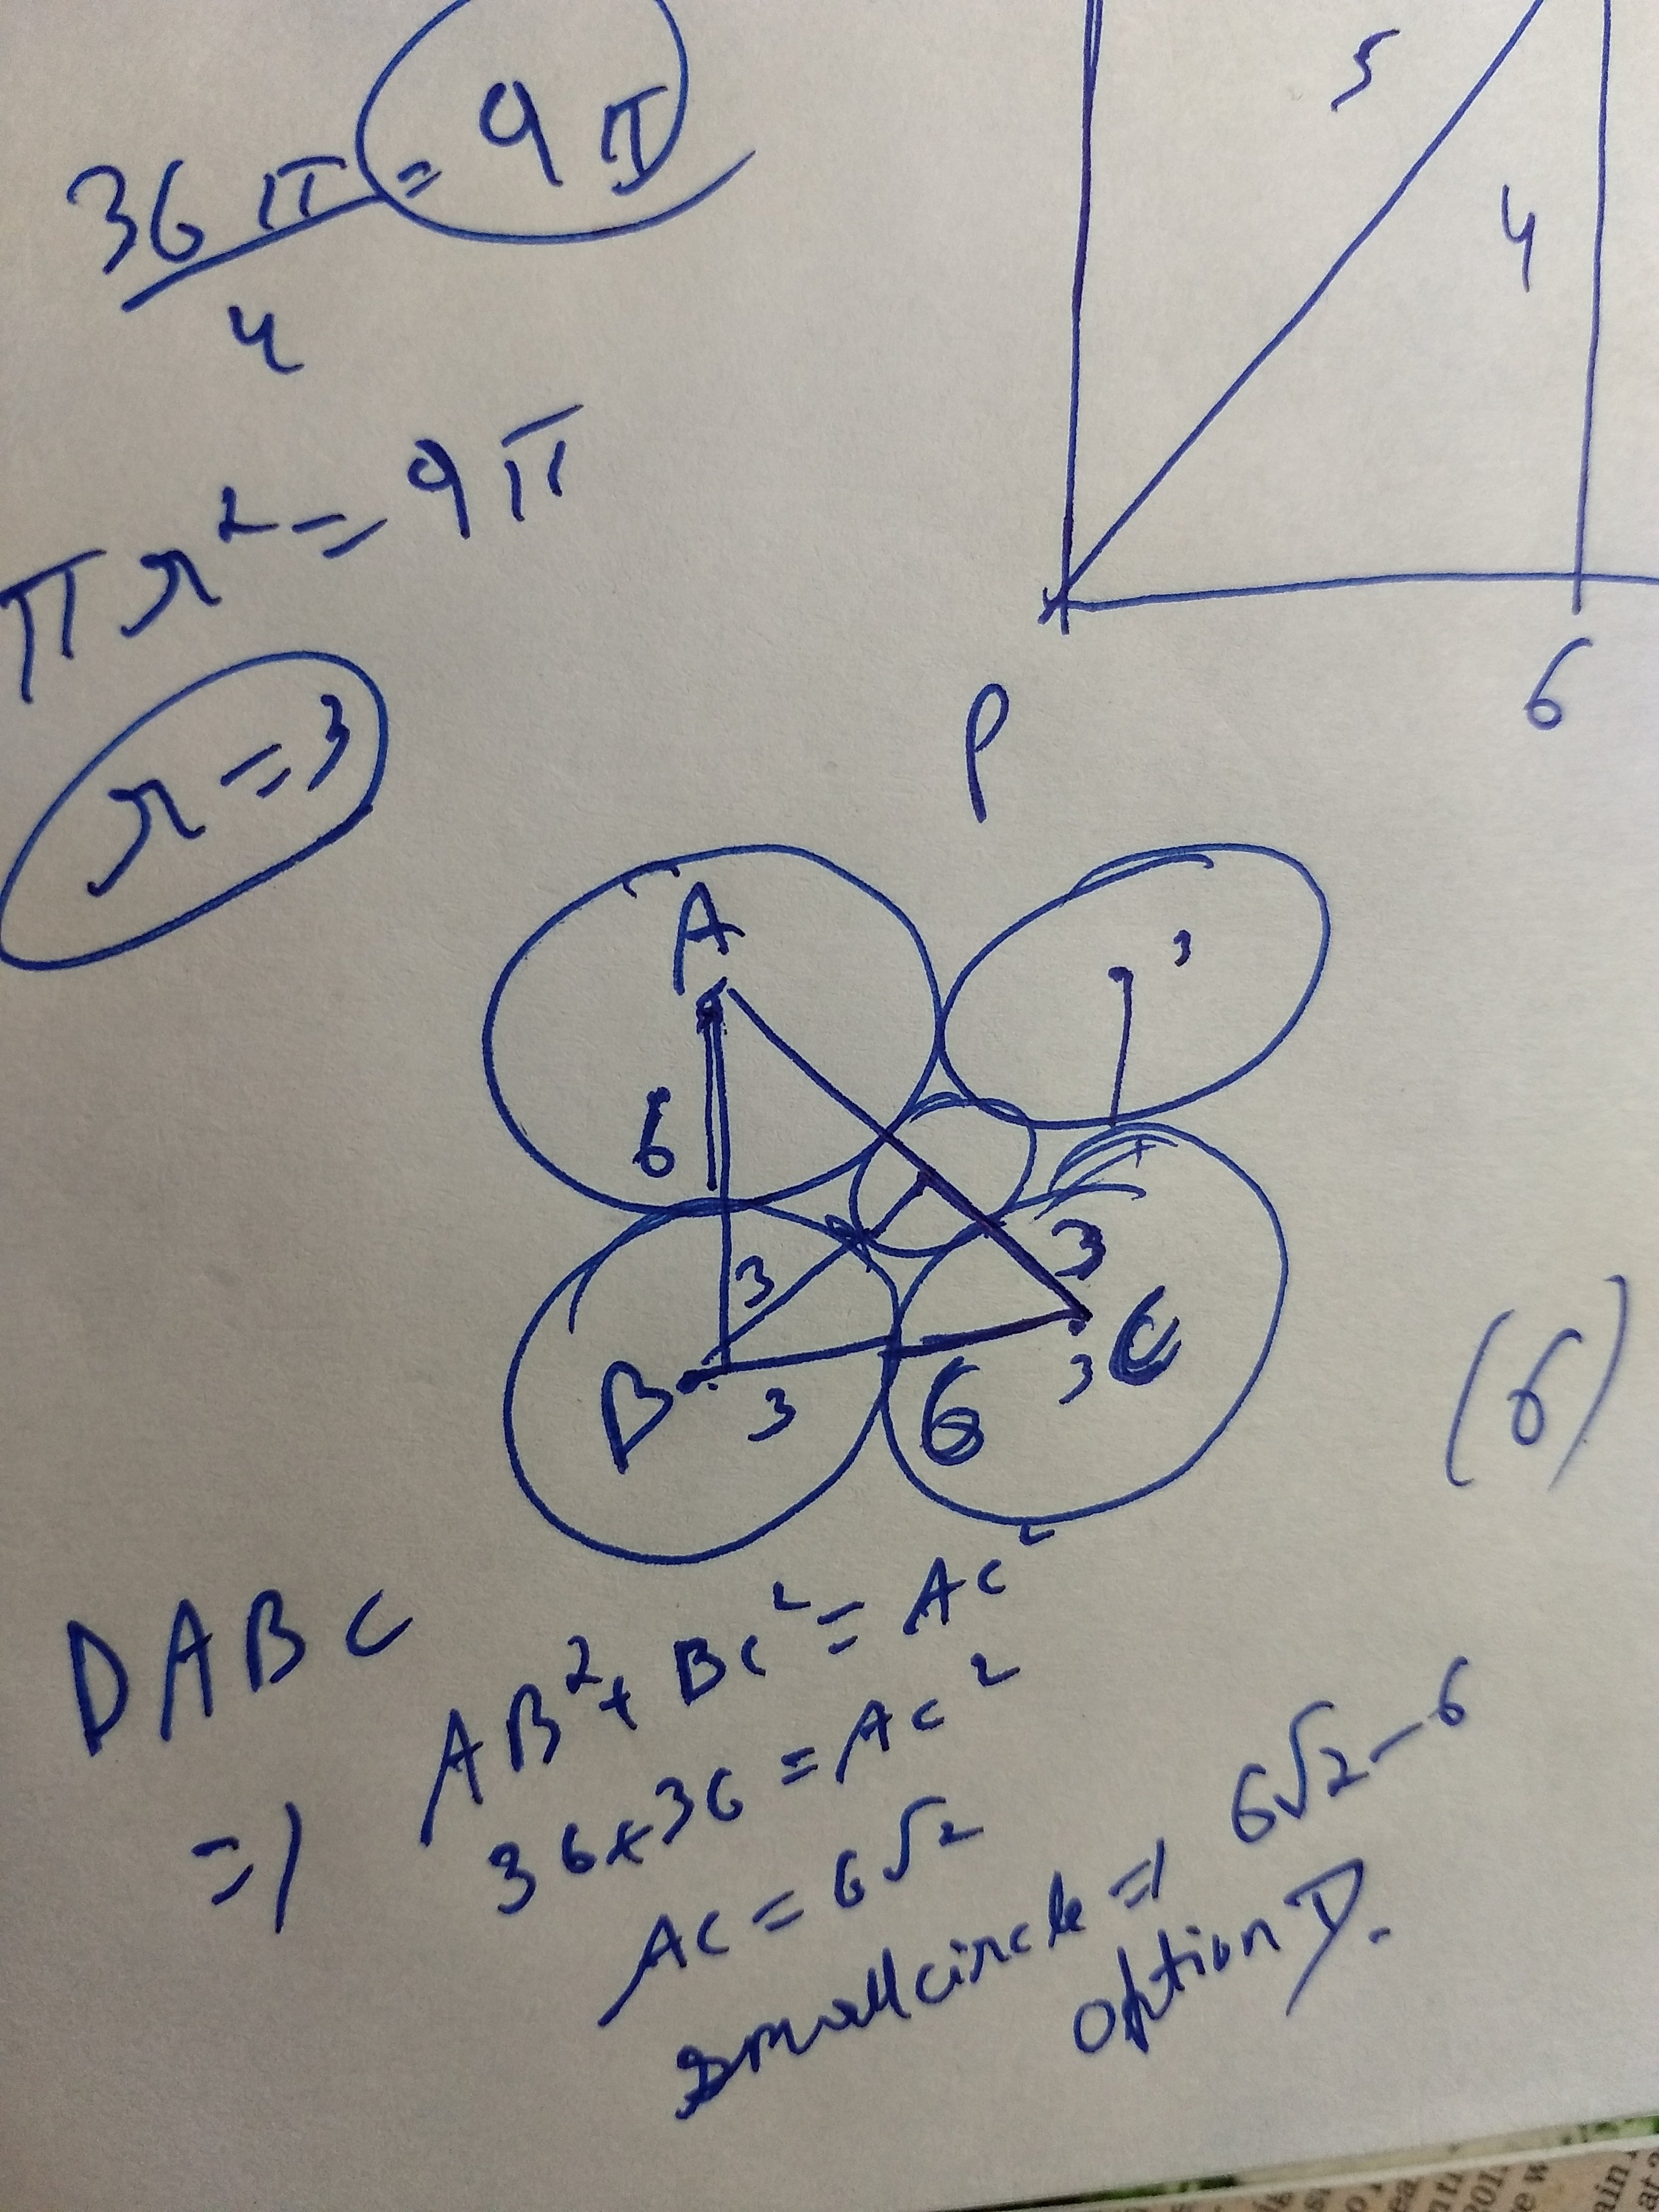 36π/4 = 9π
πr² = 9π
r = 3
5
4
6
P
A
3
6
3
3
B
3
6
3
C
(6)
DABC
⇒ AB² + BC² = AC²
36+36 = AC²
AC = 6√2
small circle ⇒ 6√2 - 6
option D.